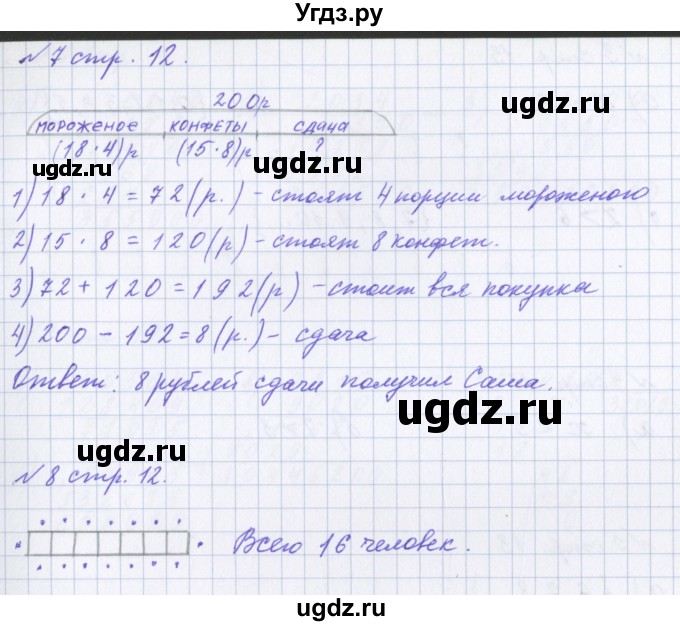 Угдз.ру
№7 стр. 12.
200р
мороженое конфеты сдача
(18·4)р (15·8)р ?
1) 18 · 4 = 72 (р.) - стоят 4 порции мороженого
2) 15 · 8 = 120 (р) - стоят 8 конфет.
3) 72 + 120 = 192 (р) - стоит вся покупка
4) 200 - 192 = 8 (р.) - сдача
Ответ: 8 рублей сдачи получил Саша.
№8 стр. 12.
Всего 16 человек.
ugdz.ru
ugdz.ru
ugdz.ru
ugdz.ru
ugdz.ru
ugdz.ru
ugdz.ru
ugdz.ru
ugdz.ru